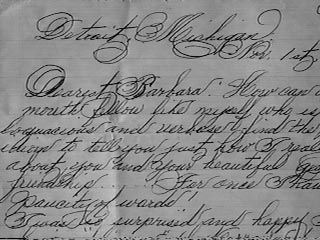 Detroit, Michigan,
Nov. 1st,
Dearest Barbara: How can a
mouth fellow like myself who is
loquacious and verbose find the
when to tell you just how I real
about you and your beautiful
friendship... For once I have
"paucity of words"
I was so surprised and happy